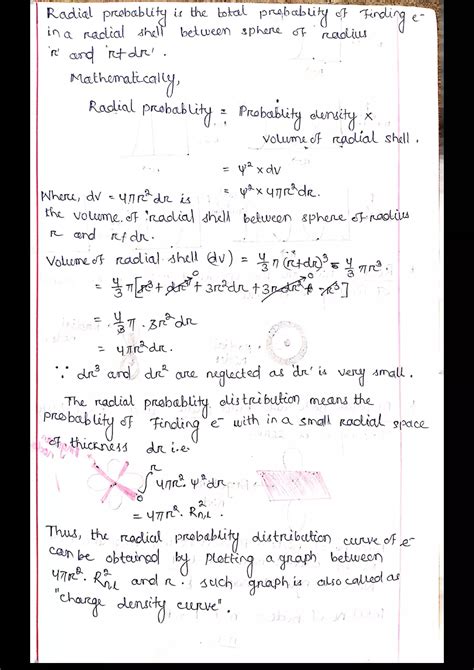 Radial probablity is the total probablity of Finding e-
in a radial shell between sphere of radius
'r' and 'r+dr'.
Mathematically,
Radial probablity = Probablity density ×
volume of radial shell.
= ψ² × dv
Where, dv = 4πr²dr is = ψ² × 4πr²dr.
the volume of radial shell between sphere of radius
r and r+dr.
Volume of radial shell (dv) = 4/3 π (r+dr)³ - 4/3 πr³.
= 4/3 π[r³ + dr³ + 3r²dr + 3rdr² - r³]
= 4/3 π · 3r²dr
= 4πr²dr.
∵ dr³ and dr² are neglected as 'dr' is very small.
The radial probablity distribution means the
probablity of Finding e- with in a small radial space
of thickness dr i.e.
∫₀ʳ 4πr² · ψ² dr
= 4πr² · R²n,l
Thus, the radial probablity distribution curve of e-
can be obtained by plotting a graph between
4πr² · R²n,l and r. such graph is also called as
"charge density curve".